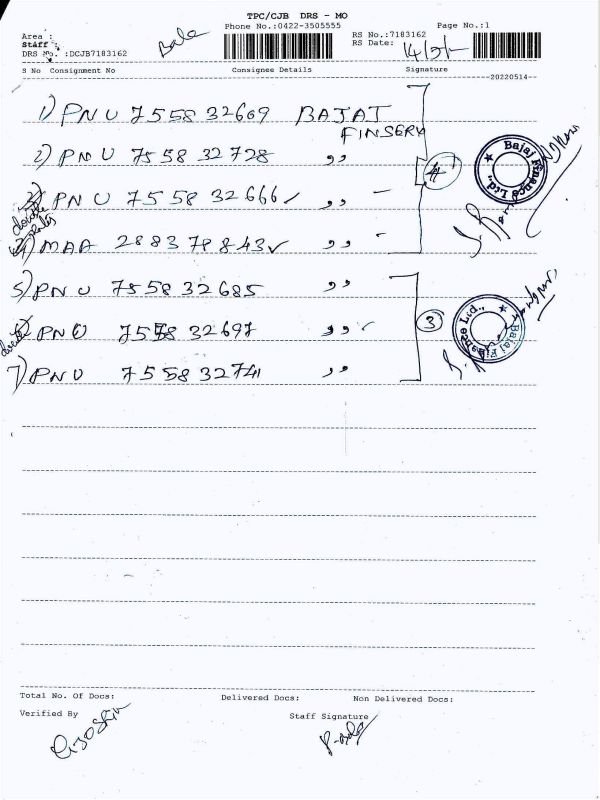 TPC/CJB DRS - MO
Phone No.:0422-3505555
Page No.:1
Area :
Staff :
DRS No. :DCJB7183162
Bala
RS No.:7183162
RS Date:
S No Consignment No Consignee Details Signature
20220514
1) PNU 755832669 BAJAJ
FINSERV
2) PNU 755832728 ,,
3) PNU 755832666 ✓ ,, -
4) MAA 288378843 ✓ ,, -
4
Bajaj Finance Ltd.,
5) PNU 755832685 ,,
6) PNU 755832697 ,,
7) PNU 755832741 ,,
3
Bajaj Finance Ltd.,
Total No. Of Docs: Delivered Docs: Non Delivered Docs:
Verified By Staff Signature
P-Bala